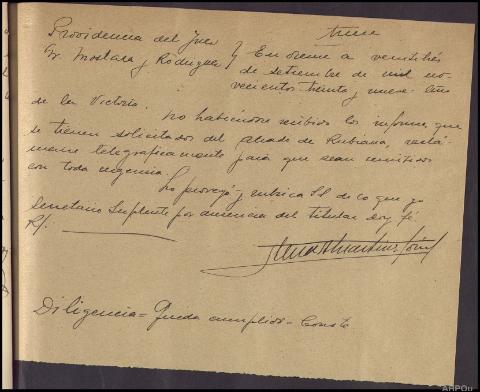 trece
Providencia del Juez } En Orense a veintitrés
Sr. Mostaza y Rodriguez } de setiembre de mil no-
vecientos treinta y nueve Año
de la Victoria.
No habiéndose recibido los informes que
se tienen solicitados del alcalde de Rubiana, reclá-
mense telegraficamente para que sean remitidos
con toda urgencia.
Lo proveyó y rubrica SSª de lo que yo
Secretario Suplente por ausencia del titular doy fé.
R/:
Diligencia = Queda cumplido = Conste
AHPOu